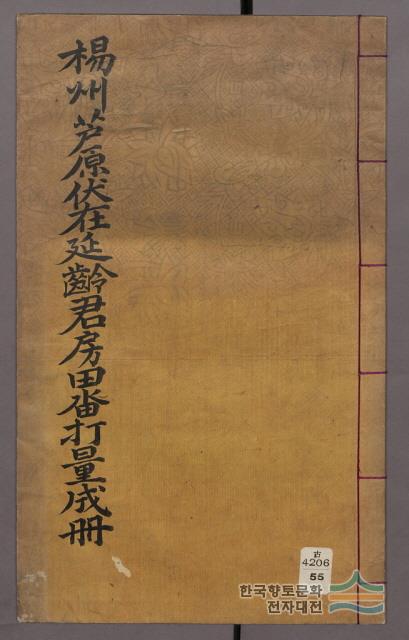 楊州芦原伏在延齡君房田畓打量成冊
古
4206
55
한국향토문화
전자대전